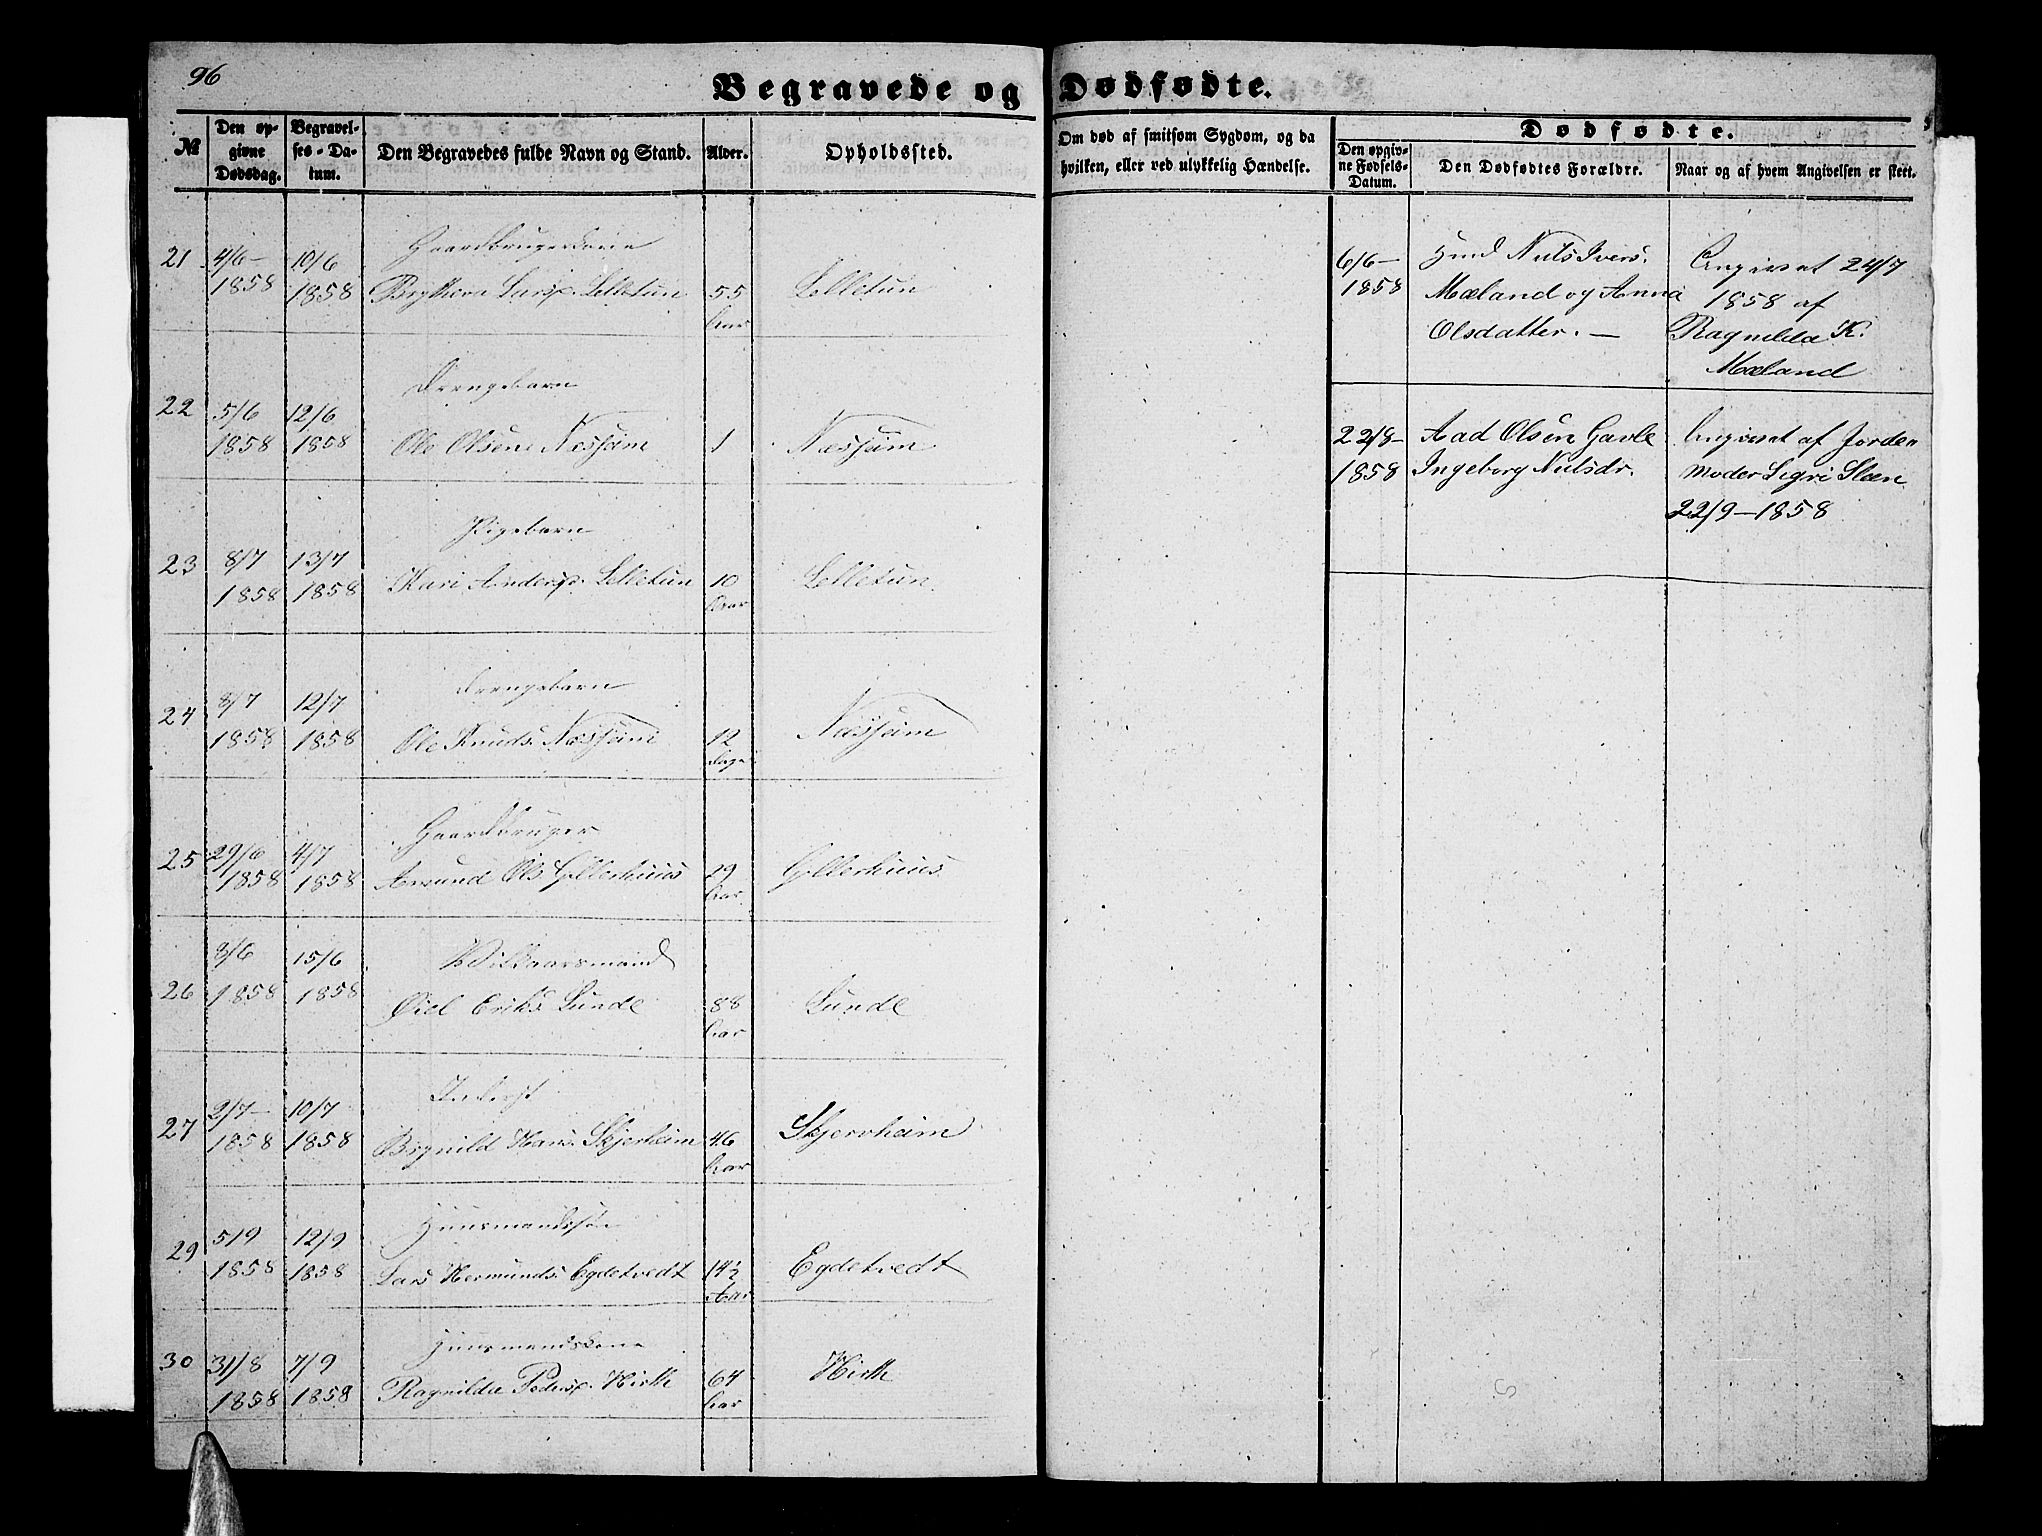 96
Begravede og Dødfødte.
№
Den op-
givne
Dødsdag.
Begravel-
ses-Da-
tum.
Den Begravedes fulde Navn og Stand.
Alder.
Opholdssted.
Om død af smitsom Sygdom, og da
hvilken, eller ved ulykkelig Hændelse.
Dødfødte.
Den opgiv-
ne Fødsels-
Datum.
Den Dødfødtes Forældre.
Naar og af hvem Angivelsen er skeet.
21
4/6-
1858
10/6
1858
Gaardbrugerkone
Lars. Lilletun
55
Aar
Lilletun
22
5/6
1858
12/6
1858
Drengebarn
Ole Olsen Næsheim
1
Næsheim
23
8/7
1858
13/7
1858
Pigebarn
Kari Andersd. Lilletun
10
Aar
Lilletun
24
8/7
1858
12/7
1858
Drengebarn
Ole Knuds. Næsheim
12
Dage
Næsheim
25
29/6
1858
4/7
1858
Gaardbruger
Amund Ols.
29
Aar
26
3/6
1858
15/6
1858
Vilkaarsmand
Eriks. Lunde
88
Aar
Lunde
27
2/7-
1858
10/7
1858
Inderst
Hans. Skjerheim
46
Aar
Skjervheim
29
5/9
1858
12/9
1858
Huusmandssøn
Lars Hermunds. Egdetvedt
14½
Aar
Egdetvedt
30
31/8
1858
7/9
1858
Huusmandskone
Ragnilda Peders. Hirth
64
Aar
Hirth
6/6-
1858
Nils Ivers.
Mæland og Anna
Olsdatter. —
Angivet 24/7
1858 af
Ragnilda K.
Mæland
22/8-
1858
Aad Olsen Gavle
Ingeborg Nilsdr.
Angivet af Jorde-
moder Sigri Slæn
22/9-1858